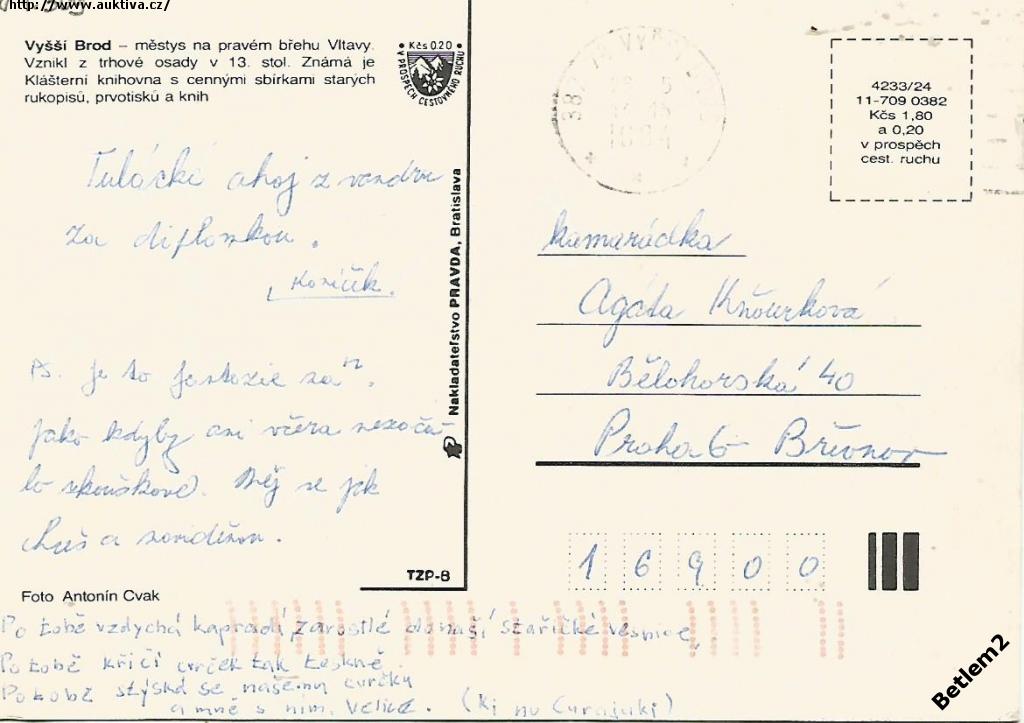 http://www.auktiva.cz/
Vyšší Brod – městys na pravém břehu Vltavy.
Vznikl z trhové osady v 13. stol. Známá je
Klášterní knihovna s cennými sbírkami starých
rukopisů, prvotisků a knih
Kčs 0.20
V PROSPĚCH CESTOVNÉHO RUCHU
4233/24
11-709 0382
Kčs 1,80
a 0,20
v prospěch
cest. ruchu
Tulácké ahoj z vandru
za diplomkou.
PS. Je to
jako kdyby ani včera nezača-
lo zkouškové. Měj se jak
chceš a
Nakladateľstvo PRAVDA, Bratislava
TZP-8
Foto Antonín Cvak
kamarádka
Agáta Kňourková
Bělohorská 40
Praha 6 Břevnov
16900
Po tobě vzdychá kapradí, zarostlé do naší stařičké vesnice,
Po tobě křičí cvrček tak teskně.
Po tobě stýská se našemu cvrčku
a mně s ním. Velice.
Betlem2